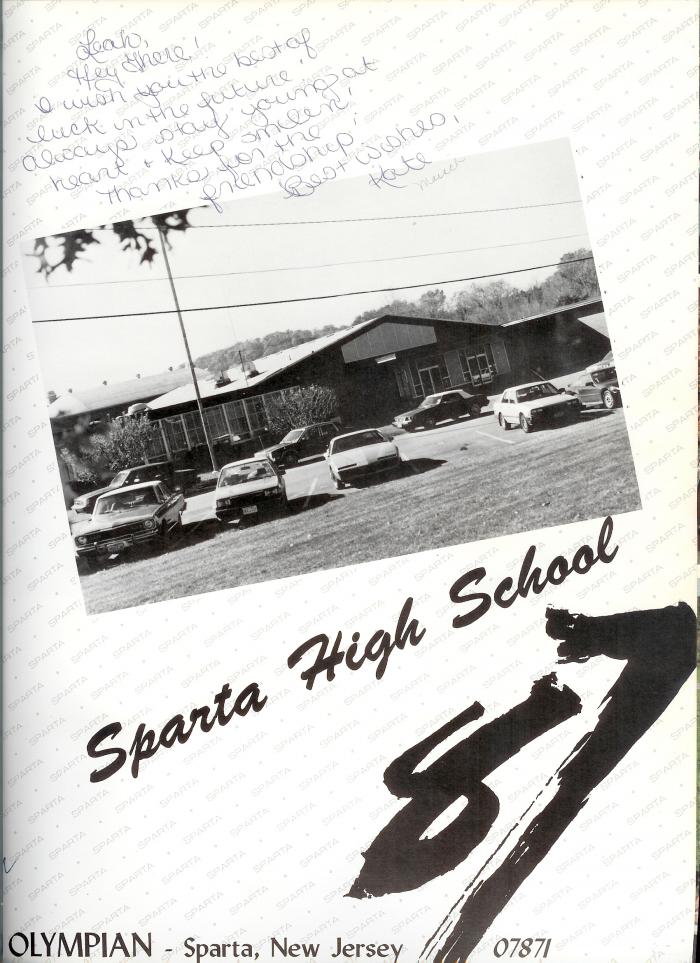 Leah,
Hey There!
I wish you the best of
luck in the future!
Always stay young at
heart & keep smilen!
Thanks for the
friendship!
Best Wishes,
Kate
Sparta High School
87
OLYMPIAN - Sparta, New Jersey 07871